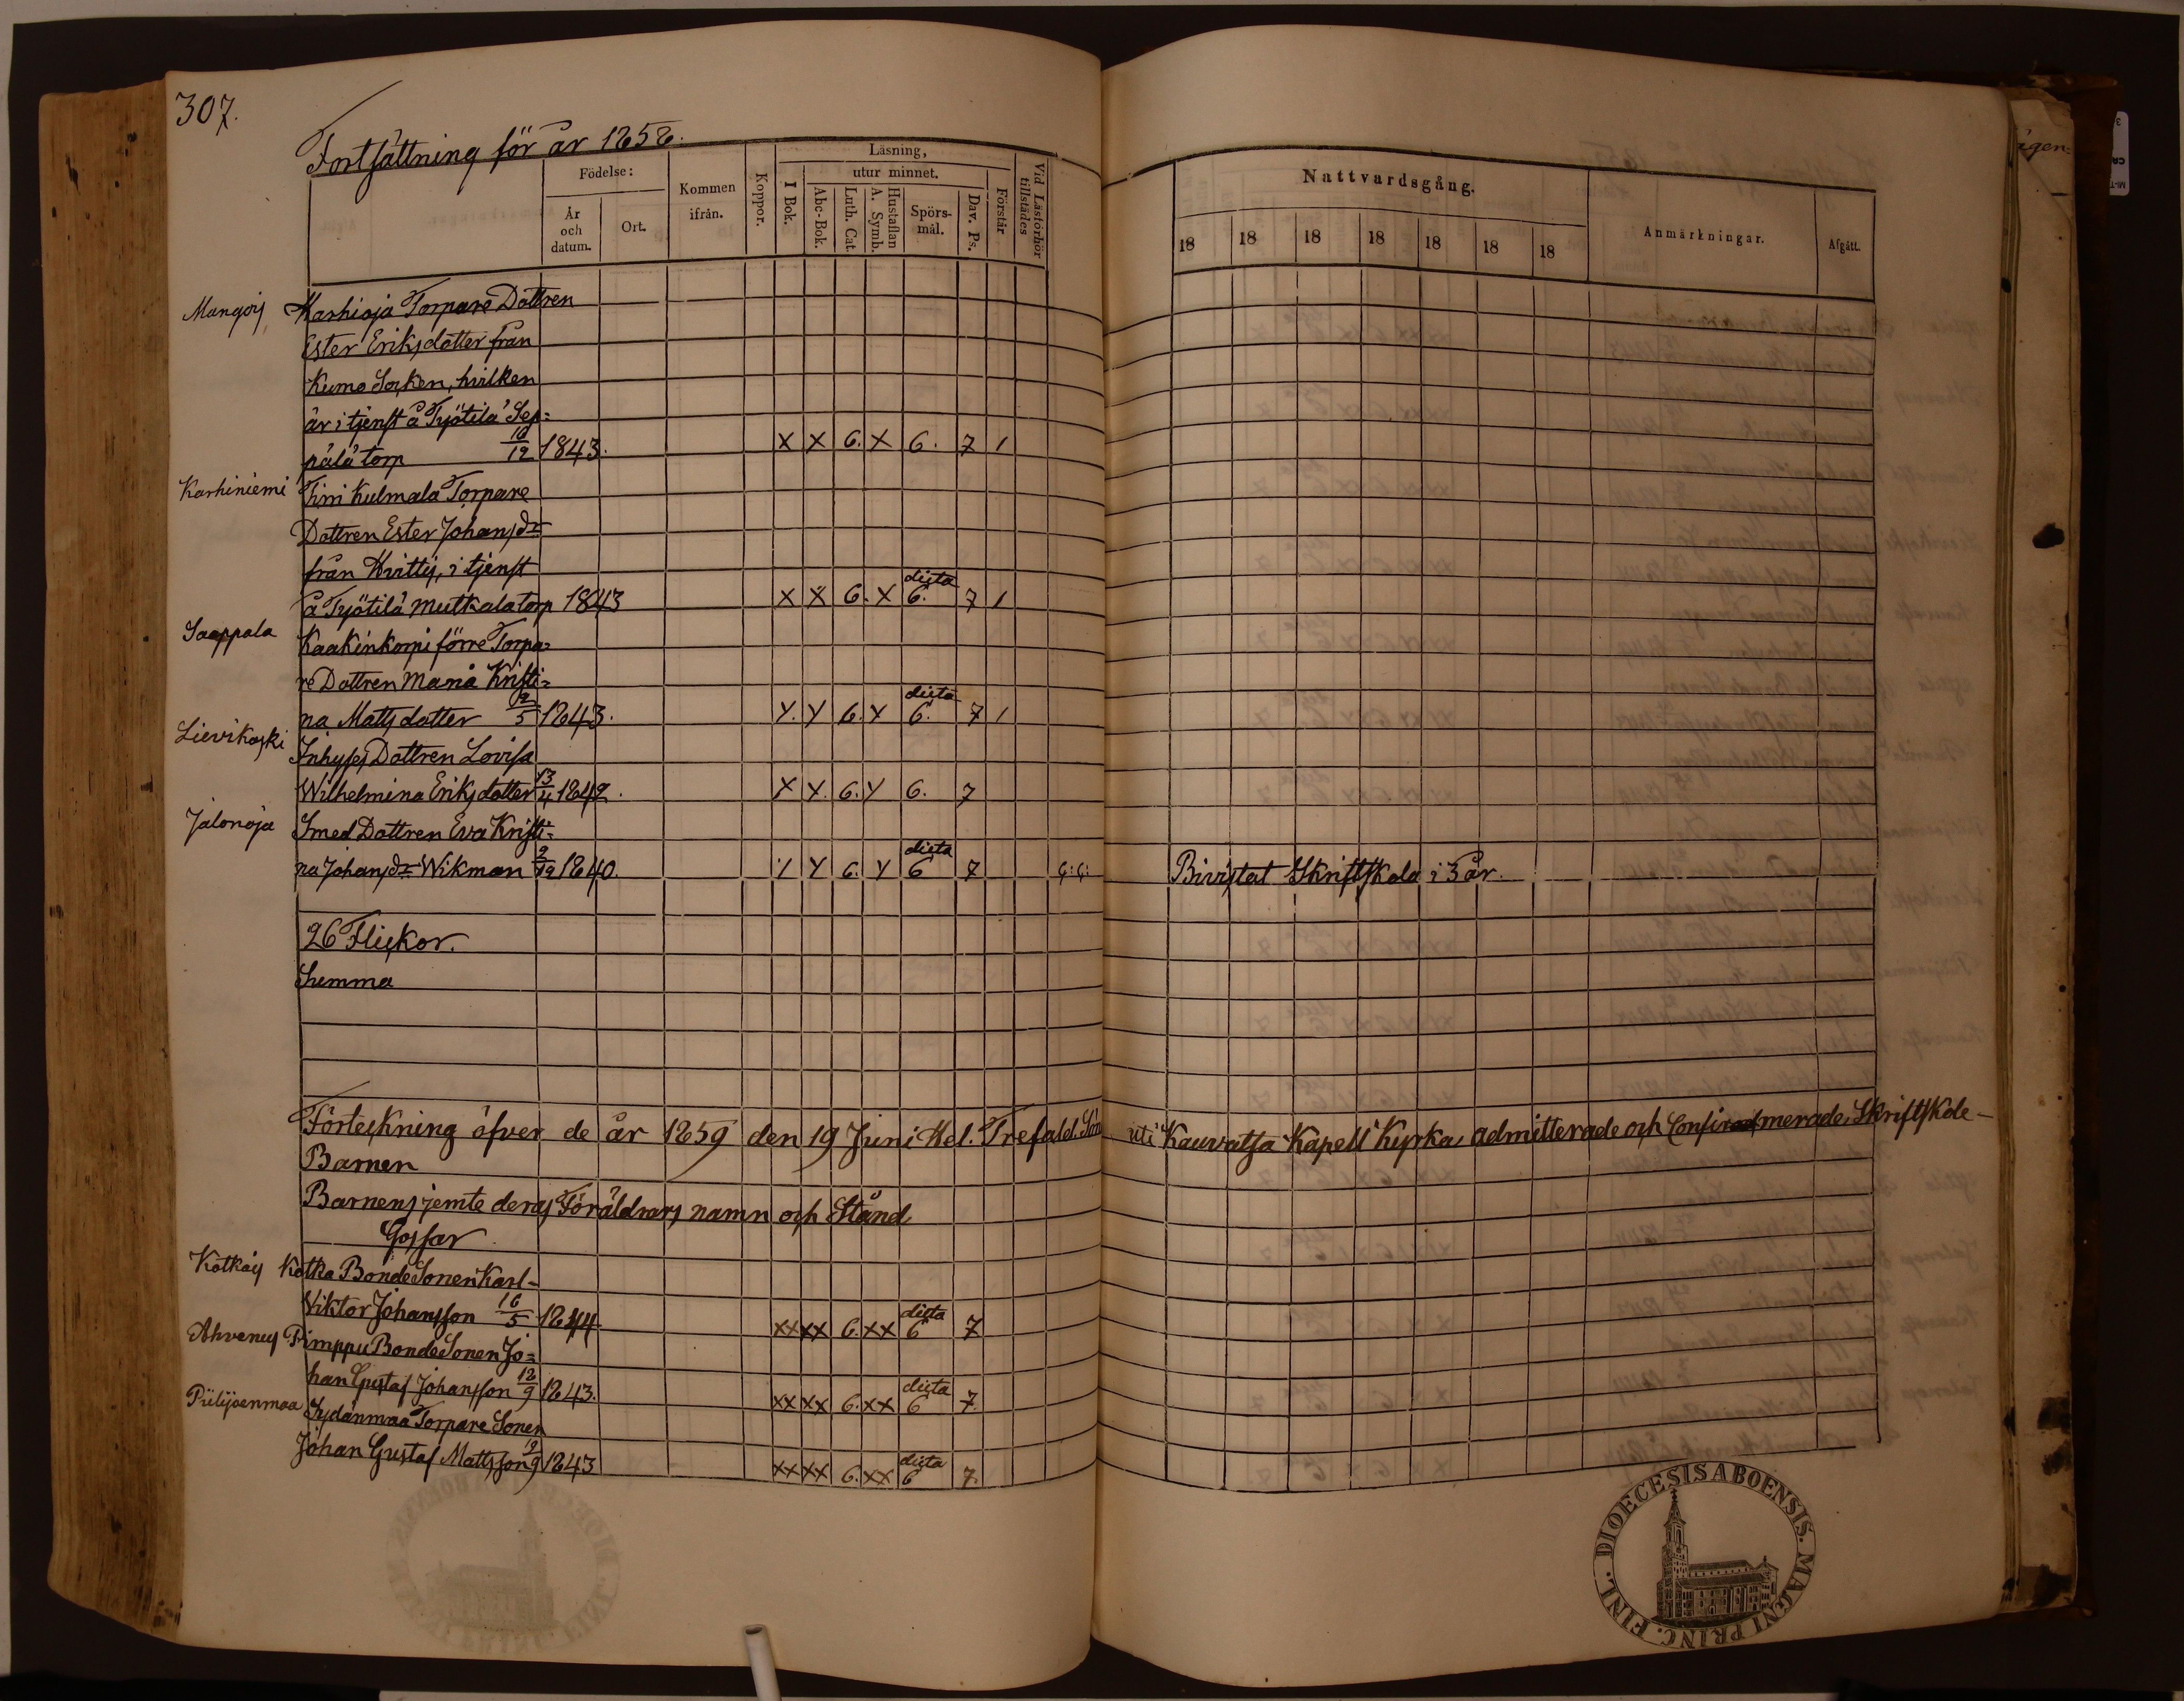 307.
Fortsättning för år 1858.
Födelse:
År och datum.
Ort.
Kommen ifrån.
Koppor.
Läsning,
I Bok.
utur minnet.
Abc-Bok.
Luth. Cat.
Hustaflan A. Symb.
Spörs-mål.
Dav. Ps.
Förstår
Vid Läsförhör tillstädes
Nattvardsgång.
18 18 18 18 18 18 18
Anmärkningar.
Afgått.
Mangois Karhioja Torpare Dottren
Ester Eriksdotter från
Kumo Socken, hvilken
är i tjenst å Työtilä Sep=
pälä torp 10/12 1843. X X 6. X 6. 7 1
Karhiniemi Tirri Kulmala Torpare
Dottren Ester Johansdr
från Hvittis, i tjenst
å Työtilä Mutkala torp 1843 X X 6. X dicta 6. 7 1
Saappala Kaakinkorpi förre Torpa=
re Dottren Maria Kristi=
na Mattsdotter 2/5 1843. X. X 6. X dicta 6. 7 1
Lievikoski Inhyses Dottren Lovisa
Wilhelmina Eriksdotter 13/4 1842. X X. 6. X 6. 7
Jalonoja Smed Dottren Eva Kristi=
na Johansdr Wikman 2/12 1840. X X 6. X dicta 6 7 Bivistat Skriftskola i 3 år.
26 Flickor.
Summa
Förteckning öfver de år 1859 den 19 Juni Hel. Trefald. Sön uti Kauvatsa Kapell Kyrka admitterade och Confirmerade Skriftskole-
Barnen
Barnens jemte deras Föräldrars namn och Stånd
Gossar
Kotkais Kotka Bonde Sonen Karl-
Viktor Johansson 16/5 1844. XX XX 6. XX dicta 6 7
Ahvenus Pimppu Bonde Sonen Jo=
han Gustaf Johansson 12/9 1843. XX XX 6. XX dicta 6 7.
Piilijoenmaa Sydänmaa Torpare Sonen
Johan Gustaf Mattsson 19/9 1843 XX XX 6. XX dicta 6 7.
DIOECESIS ABOENSIS. MAGNI PRINC. FINL.